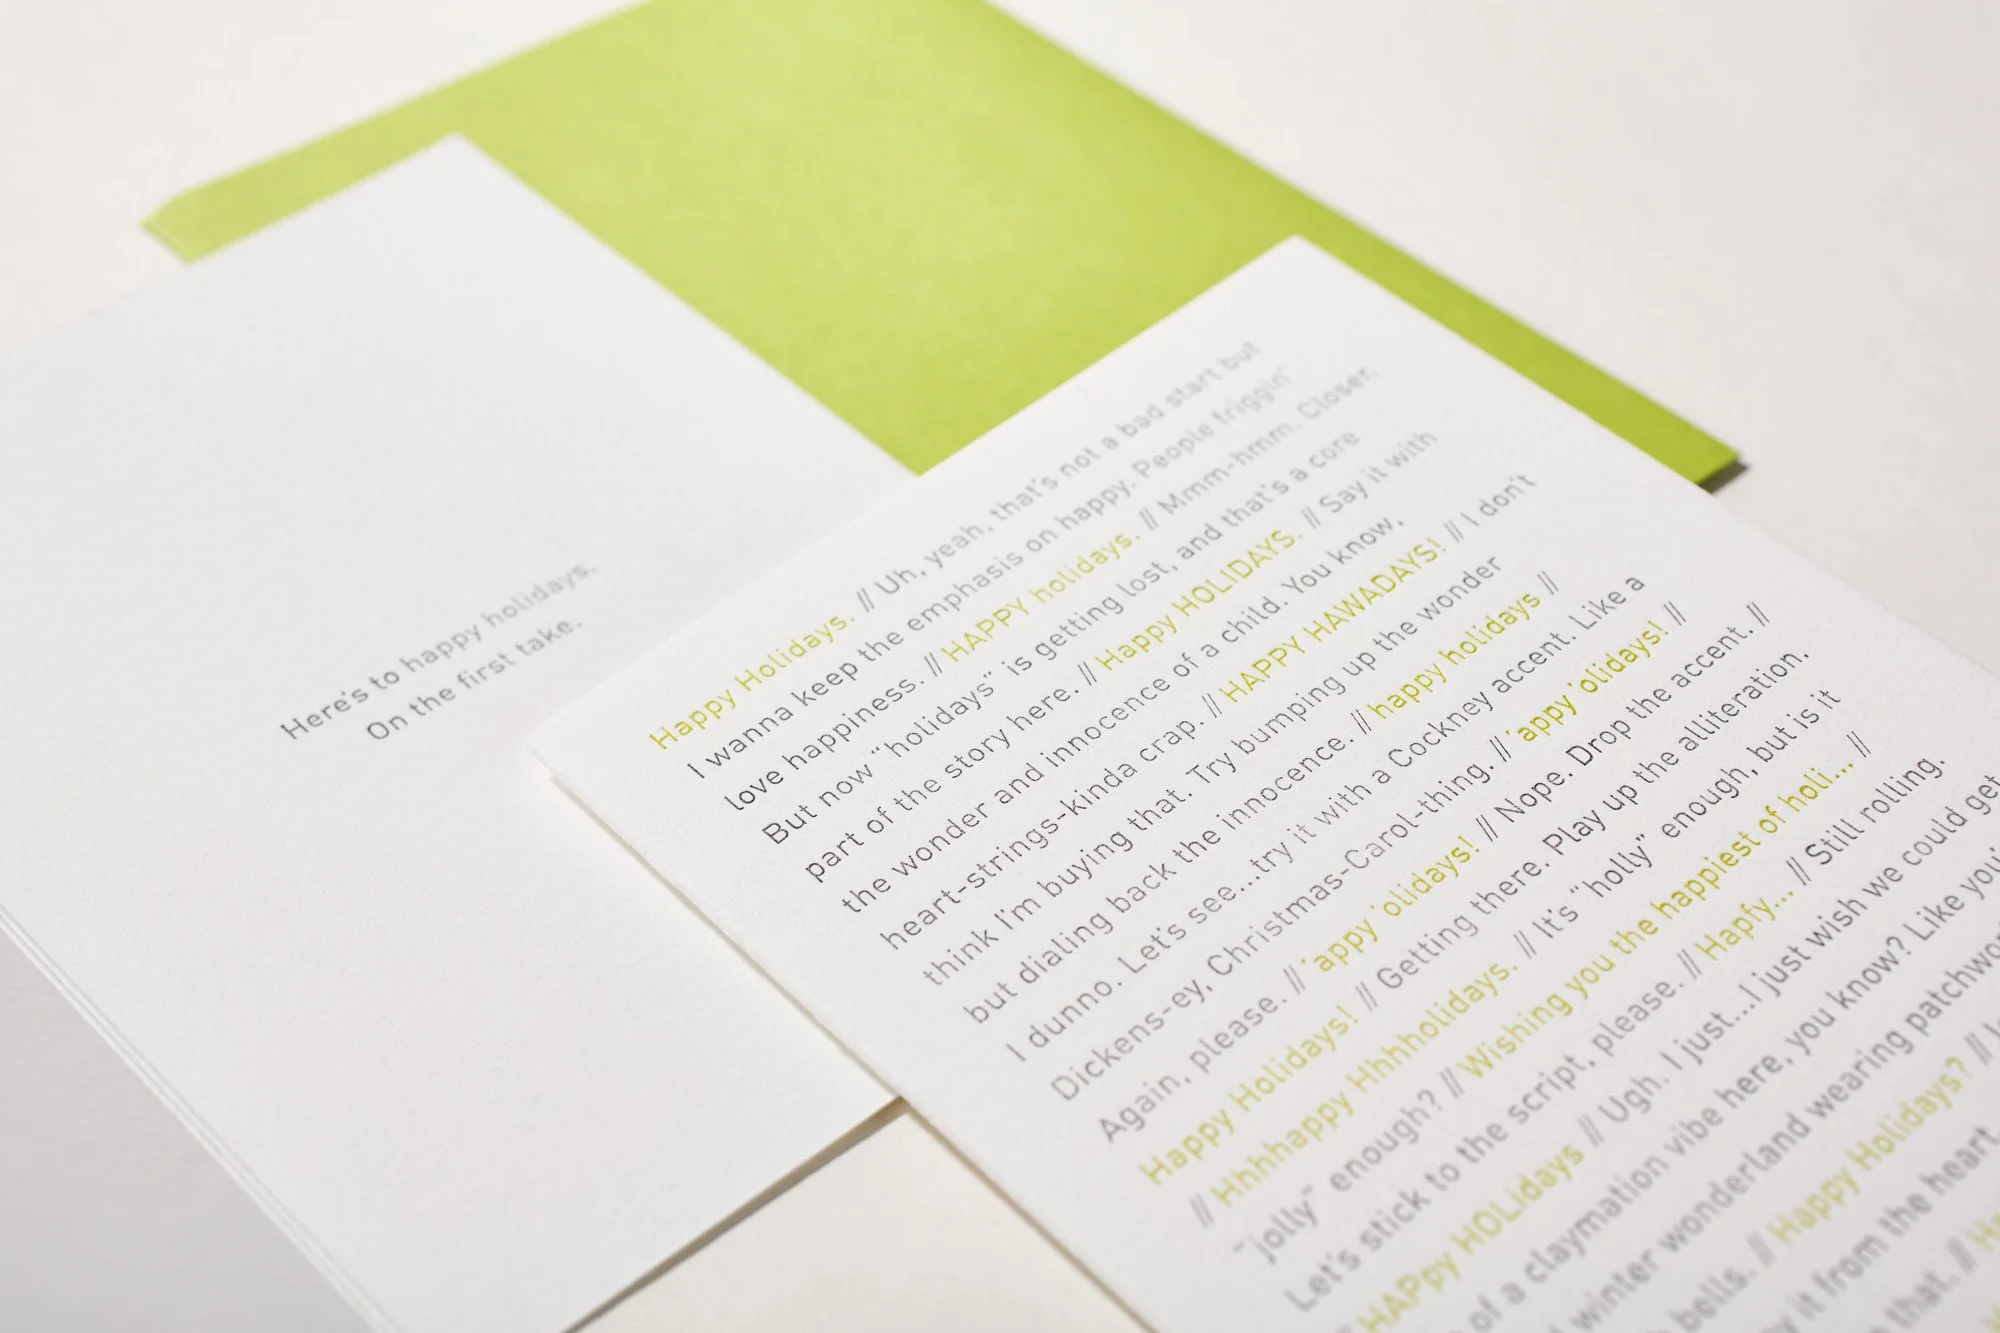 Here's to happy holidays.
On the first take.
Happy Holidays. // Uh, yeah, that's not a bad start but
I wanna keep the emphasis on happy. People friggin'
love happiness. // HAPPY holidays. // Mmm-hmm. Closer.
But now “holidays” is getting lost, and that's a core
part of the story here. // Happy HOLIDAYS. // Say it with
the wonder and innocence of a child. You know,
heart-strings-kinda crap. // HAPPY HAWADAYS! // I don't
think I'm buying that. Try bumping up the wonder
but dialing back the innocence. // happy holidays //
I dunno. Let's see...try it with a Cockney accent. Like a
Dickens-ey, Christmas-Carol-thing. // 'appy 'olidays! //
Again, please. // 'appy 'olidays! // Nope. Drop the accent. //
Happy Holidays! // Getting there. Play up the alliteration.
// Hhhhappy Hhhholidays. // It's “holly” enough, but is it
“jolly” enough? // Wishing you the happiest of holi... //
Let's stick to the script, please. // Hapfy... // Still rolling.
// HAPpy HOLidays // Ugh. I just...I just wish we could get
of a claymation vibe here, you know? Like
winter wonderland wearing
bells. // Happy Holidays? //
it from the heart.
that. //